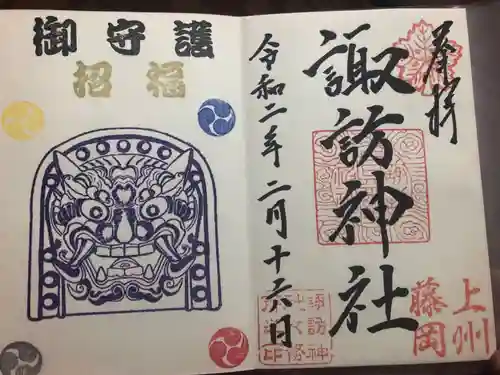 御守護
招福
奉拝
上州
藤岡
諏訪神社
令和二年二月十六日
諏訪神